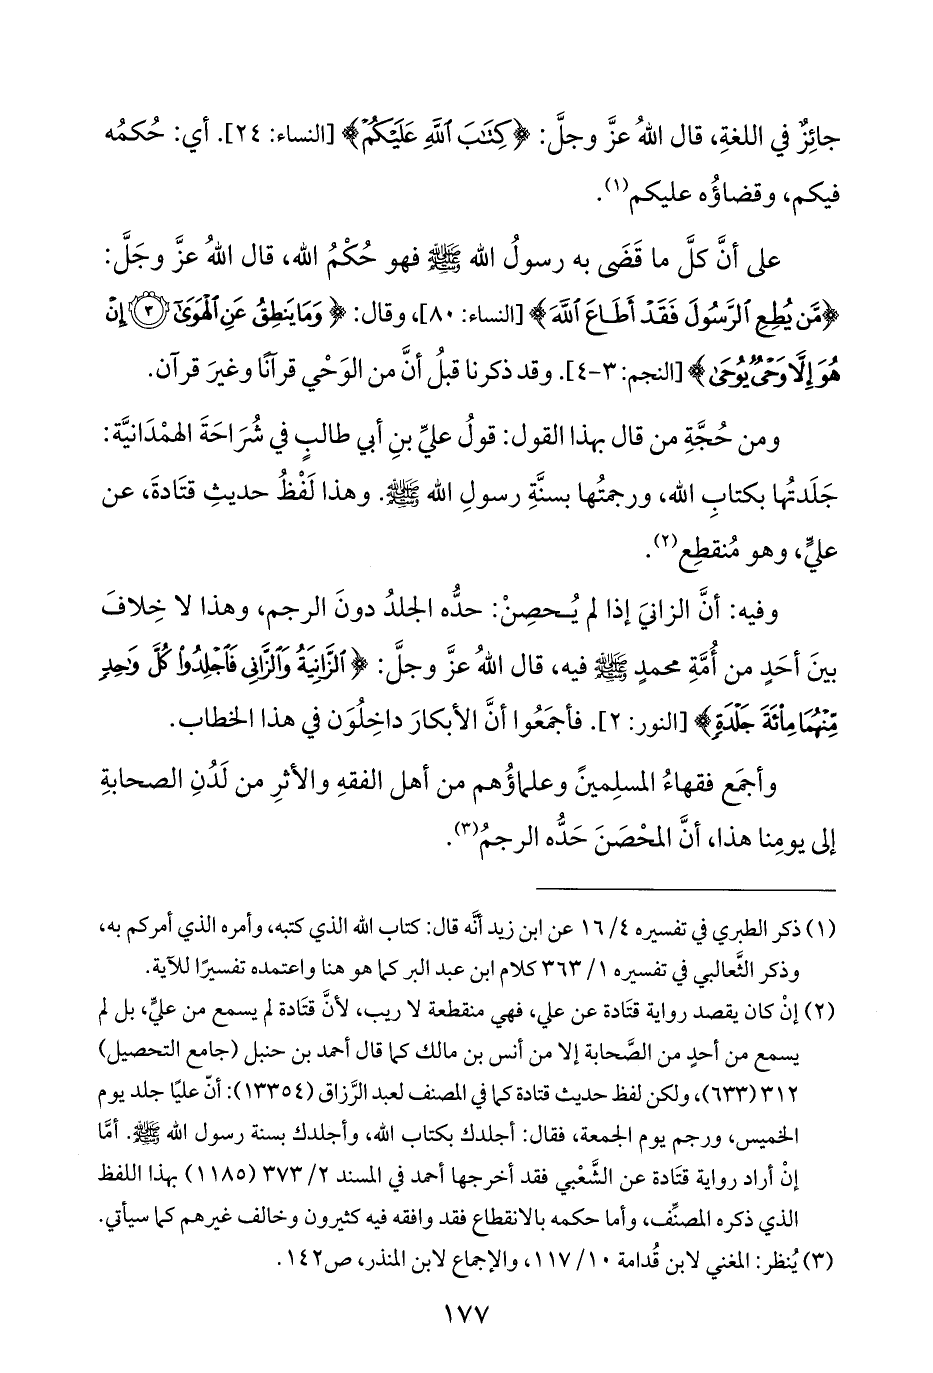 جائِزٌ في اللغةِ، قال اللهُ عزَّ وجلَّ: ﴿كِتَٰبَ ٱللَّهِ عَلَيۡكُمۡ﴾ [النساء: ٢٤]. أي: حُكمُه
فيكم، وقضاؤُه عليكم(١).
على أنَّ كلَّ ما قَضَى به رسولُ الله ﷺ فهو حُكْمُ الله، قال اللهُ عزَّ وجَلَّ:
﴿مَّن يُطِعِ ٱلرَّسُولَ فَقَدۡ أَطَاعَ ٱللَّهَ﴾ [النساء: ٨٠]، وقال: ﴿وَمَا يَنطِقُ عَنِ ٱلۡهَوَىٰٓ ٣ إِنۡ
هُوَ إِلَّا وَحۡيٞ يُوحَىٰ﴾ [النجم: ٣-٤]. وقد ذكرنا قبلُ أنَّ من الوَحْي قرآنًا وغيرَ قرآن.
ومن حُجَّةِ من قال بهذا القول: قولُ عليِّ بنِ أبي طالبٍ في شُرَاحَةَ الهمْدَانيَّة:
جَلَدتُها بكتابِ الله، ورجمتُها بسنَّةِ رسولِ الله ﷺ. وهذا لَفْظُ حديثِ قتَادةَ، عن
عليٍّ، وهو مُنقطِع(٢).
وفيه: أنَّ الزانيَ إذا لم يُحصِنْ: حدُّه الجلدُ دونَ الرجمِ، وهذا لا خِلافَ
بينَ أحَدٍ من أُمَّةِ محمدٍ ﷺ فيه، قال اللهُ عزَّ وجلَّ: ﴿ٱلزَّانِيَةُ وَٱلزَّانِي فَٱجۡلِدُواْ كُلَّ وَٰحِدٖ
مِّنۡهُمَا مِاْئَةَ جَلۡدَةٖ﴾ [النور: ٢]. فأجمَعُوا أنَّ الأبكارَ داخِلُون في هذا الخطاب.
وأجمَع فقهاءُ المسلِمينَ وعلماؤُهم من أهل الفقهِ والأثرِ من لَدُنِ الصحابةِ
إلى يومِنا هذا، أنَّ المحْصَنَ حَدُّه الرجمُ(٣).
(١) ذكر الطبري في تفسيره ٤/ ١٦ عن ابن زيد أنَّه قال: كتاب الله الذي كتبه، وأمره الذي أمركم به،
وذكر الثَّعالبي في تفسيره ١/ ٣٦٣ كلام ابن عبد البر كما هو هنا واعتمده تفسيرًا للآية.
(٢) إنْ كان يقصد رواية قتَادة عن علي، فهي منقطعة لا ريب، لأنَّ قتَادة لم يسمع من عليٍّ، بل لم
يسمع من أحدٍ من الصَّحابة إلا من أنس بن مالك كما قال أحمد بن حنبل (جامع التحصيل)
٣١٢ (٦٣٣)، ولكن لفظ حديث قتادة كما في المصنف لعبد الرَّزاق (١٣٣٥٤): أنّ عليًا جلد يوم
الخميس، ورجم يوم الجمعة، فقال: أجلدك بكتاب الله، وأجلدك بسنة رسول الله ﷺ. أمَّا
إنْ أراد رواية قتَادة عن الشَّعْبي فقد أخرجها أحمد في المسند ٢/ ٣٧٣ (١١٨٥) بهذا اللفظ
الذي ذكره المصنِّف، وأما حكمه بالانقطاع فقد وافقه فيه كثيرون وخالف غيرهم كما سيأتي.
(٣) يُنظر: المغني لابن قُدامة ١٠/ ١١٧، والإجماع لابن المنذر، ص١٤٢.
١٧٧